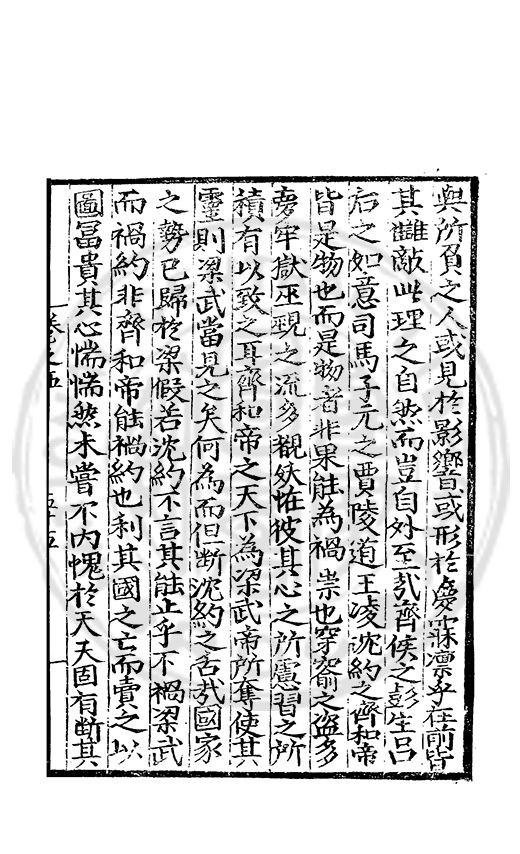 與所負之人或見於影響或形於夢寐凛乎在前皆
其讎敵此理之自然而豈自外至㢤齊侯之彭生吕
后之如意司馬子元之賈陵道王凌沈約之齊和帝
皆是物也而是物者非果能為禍祟也穿窬之盜多
夢牢獄巫覡之流多觀妖恠彼其心之所慮習之所
積有以致之耳齊和帝之天下為梁武帝所奪使其
靈則梁武當見之矣何為而但断沈約之舌㢤國家
之勢已歸於梁假若沈約不言其能止乎不禍梁武
而禍約非齊和帝能禍約也利其國之亡而賣之以
圖冨貴其心惴惴然未嘗不内愧於天天固有断其
卷之五
五十五